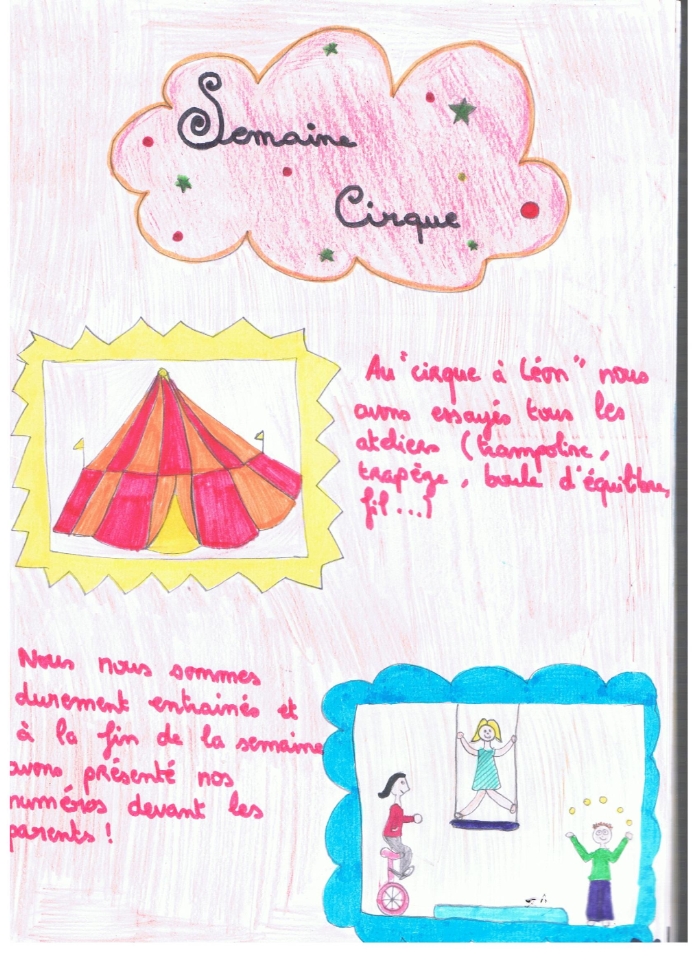 Semaine
Cirque
Au "cirque à Léon" nous
avons essayés tous les
ateliers (trampoline,
trapèze, boule d'équilibre,
fil...)
Nous nous sommes
durement entrainés et
à la fin de la semaine
avons présenté nos
numéros devant les
parents !